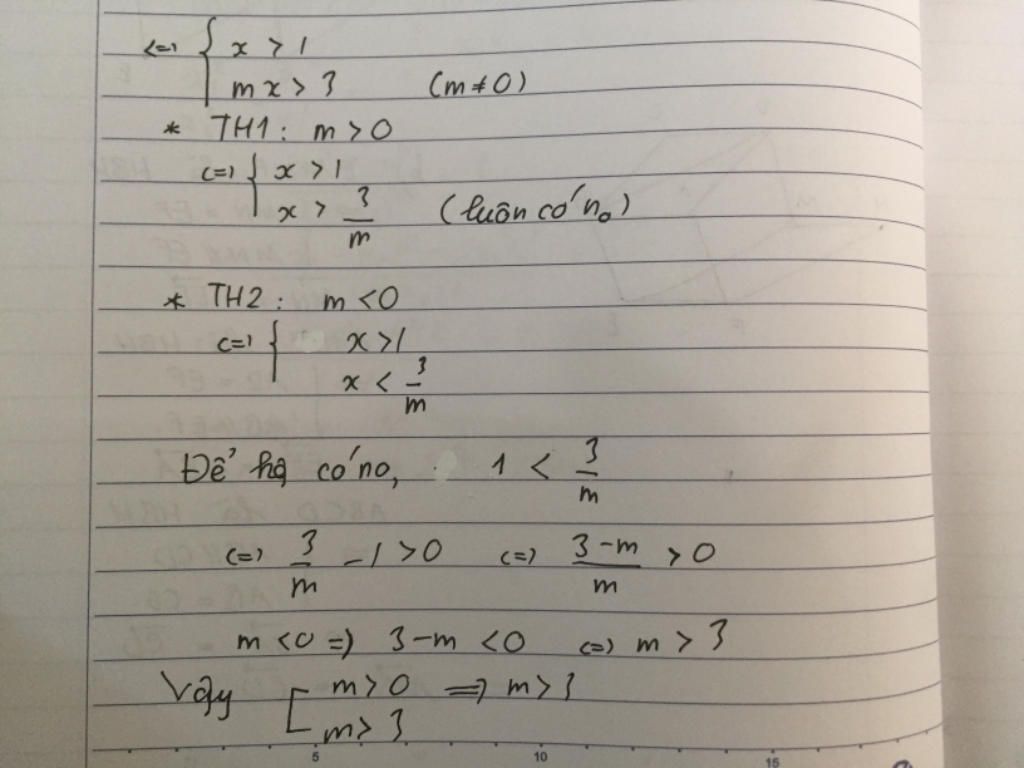 <=> { x > 1
mx > 3 (m ≠ 0)
* TH1: m > 0
<=> { x > 1
x > 3/m (luôn có no)
* TH2: m < 0
<=> { x > 1
x < 3/m
Để hệ có no, 1 < 3/m
<=> 3/m - 1 > 0 <=> (3-m)/m > 0
m < 0 => 3-m < 0 <=> m > 3
Vậy [ m > 0 => m > 3
m > 3
5 10 15